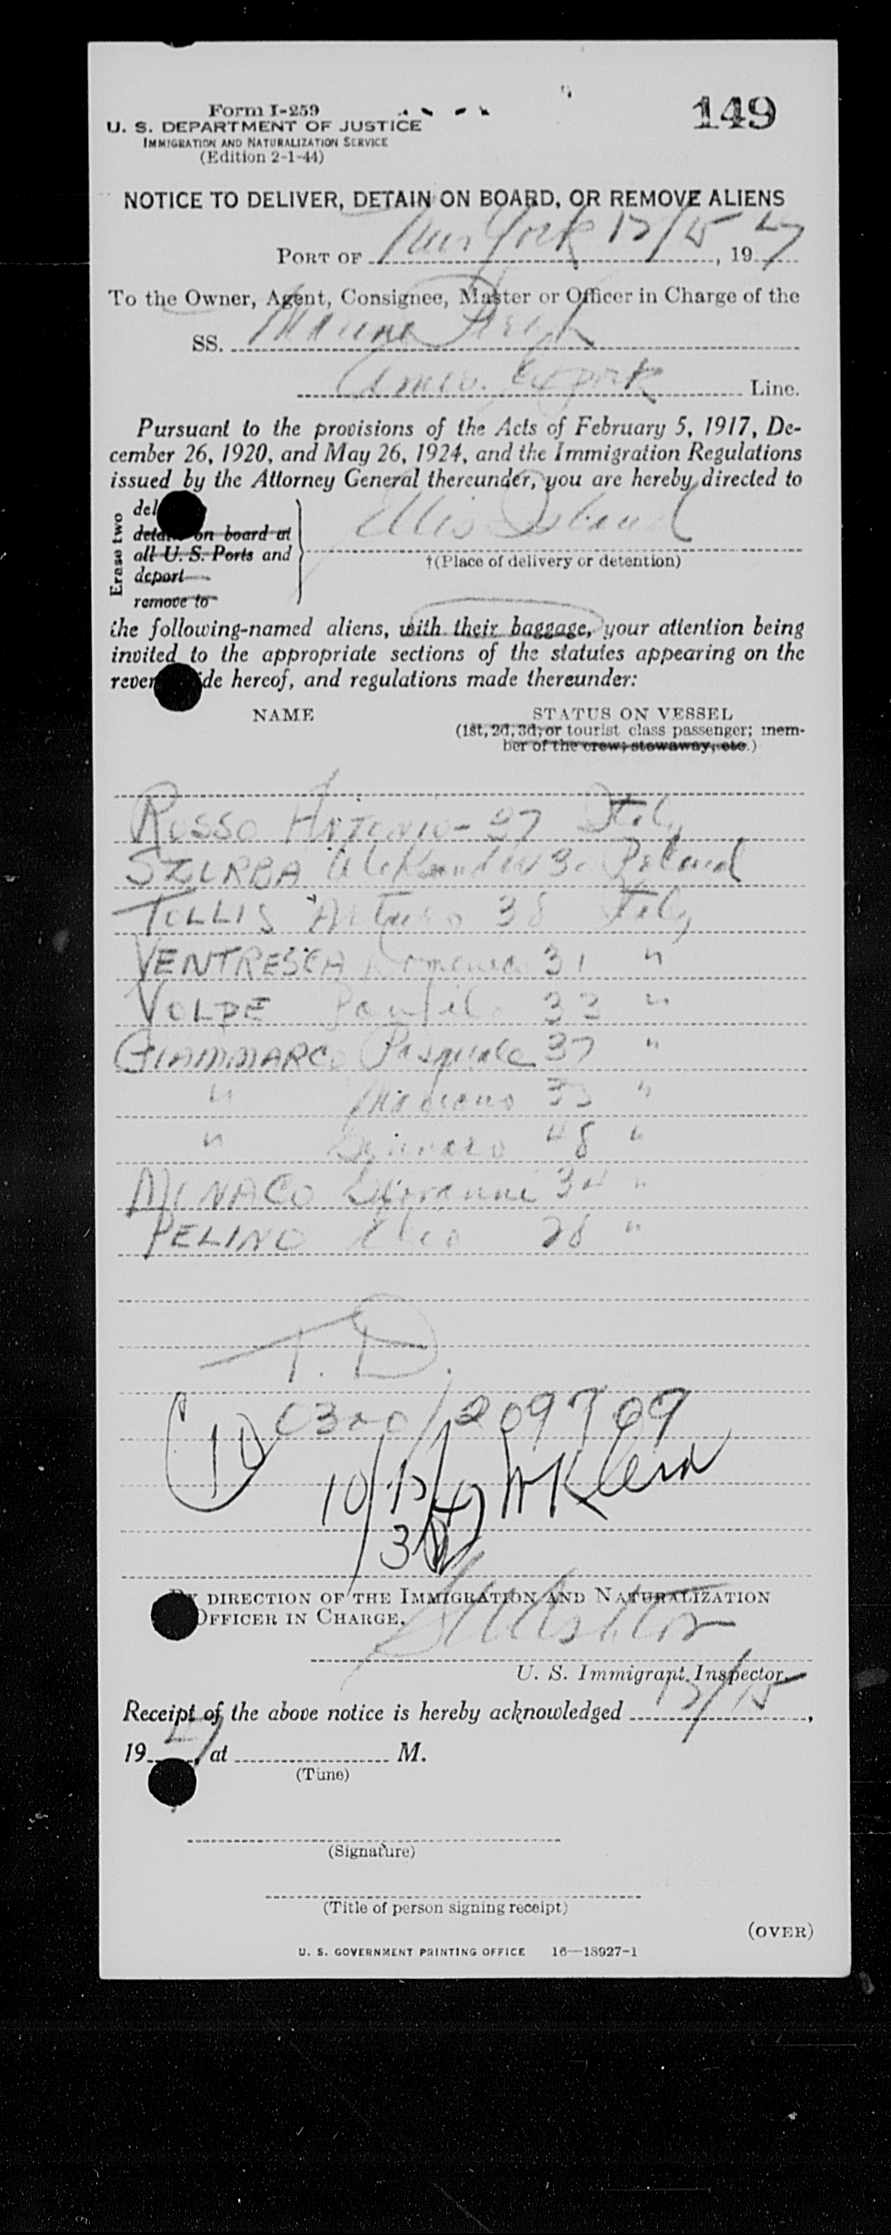 149
Form I-259
U. S. DEPARTMENT OF JUSTICE
IMMIGRATION AND NATURALIZATION SERVICE
(Edition 2-1-44)
NOTICE TO DELIVER, DETAIN ON BOARD, OR REMOVE ALIENS
PORT OF New York 12/15, 1947
To the Owner, Agent, Consignee, Master or Officer in Charge of the
SS. Marine
Amer. Export Line.
Pursuant to the provisions of the Acts of February 5, 1917, De-
cember 26, 1920, and May 26, 1924, and the Immigration Regulations
issued by the Attorney General thereunder, you are hereby directed to
Erase two
del
detain on board at
all U. S. Ports and
deport
remove to
Ellis Island
†(Place of delivery or detention)
the following-named aliens, with their baggage, your attention being
invited to the appropriate sections of the statutes appearing on the
reverse side hereof, and regulations made thereunder:
NAME STATUS ON VESSEL
(1st, 2d, 3d, or tourist class passenger; mem-
ber of the crew; stowaway, etc.)
ROSSO ANTONIO - 27 Italy
SZURBA Aleksander 3 Poland
TOLLIS Arturo 38 Italy
VENTRESCA 31 "
VOLPE Panfilo 33 "
GIAMMARCO Pasquale 37 "
" Mariano 33 "
" Gennaro 48 "
MINACO Giovanni 34 "
PELINO 28 "
T. D.
0300/209709
BY DIRECTION OF THE IMMIGRATION AND NATURALIZATION
OFFICER IN CHARGE,
U. S. Immigrant Inspector.
Receipt of the above notice is hereby acknowledged 12/15,
1947, at M.
(Time)
(Signature)
(Title of person signing receipt)
(OVER)
U. S. GOVERNMENT PRINTING OFFICE 16—18927-1